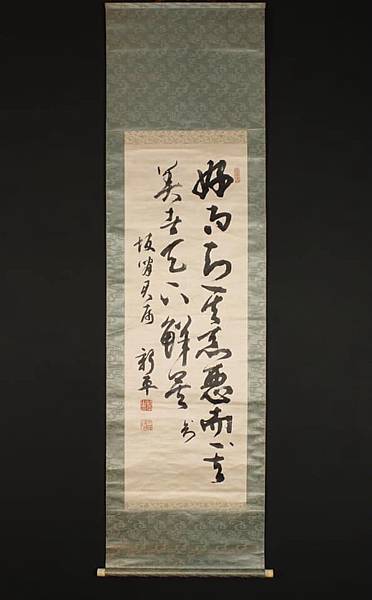 好而知其惡惡而其
美者天下鮮矣 知
坂君属
新平